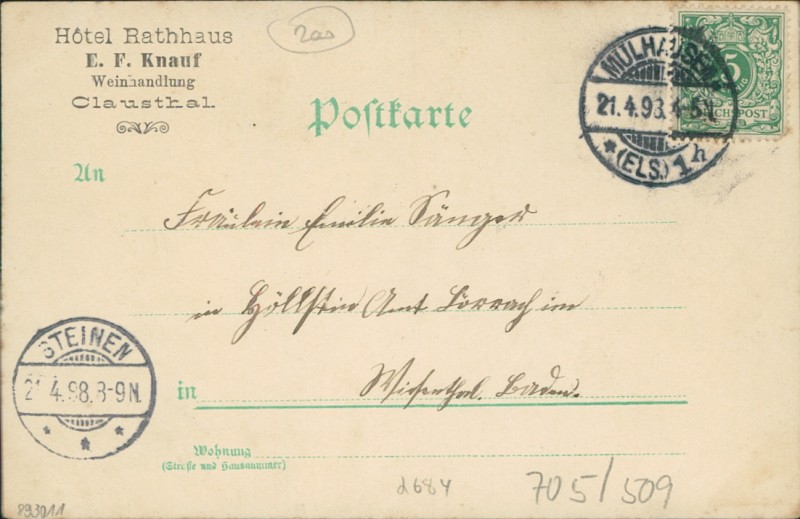 Hôtel Rathhaus
E. F. Knauf
Weinhandlung
Clausthal.
200
Postkarte
MÜLHAUSEN
21.4.98. 4-5N.
* (ELS.) 1h
5
REICHSPOST
An
Fräulein Emilie Sänger
in Höllstein Amt Lörrach im
in Wiesenthal. Baden.
STEINEN
21.4.98. 8-9N.
* * *
Wohnung
(Straße und Hausnummer)
2684
705/509
893011